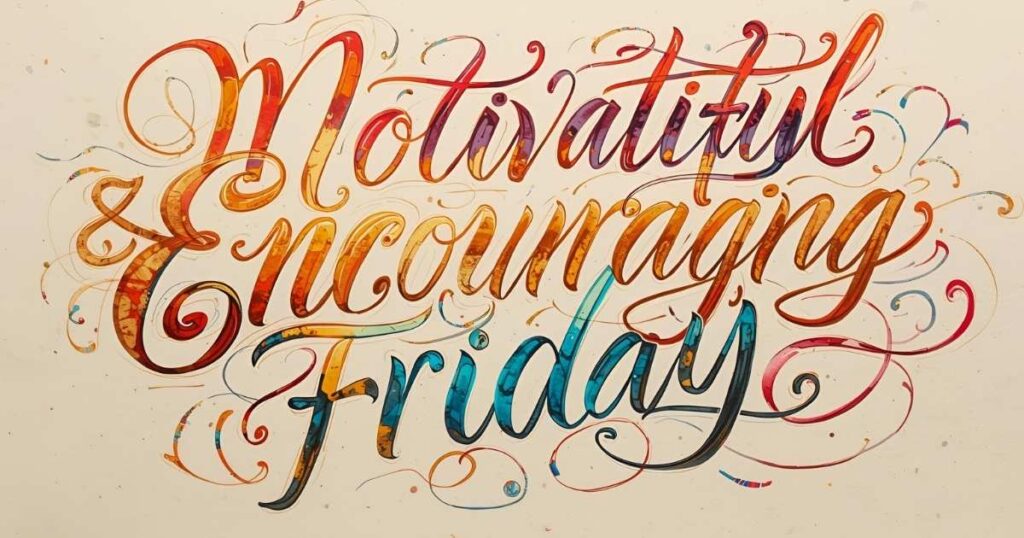 Motivatiful
& Encouraging
Friday